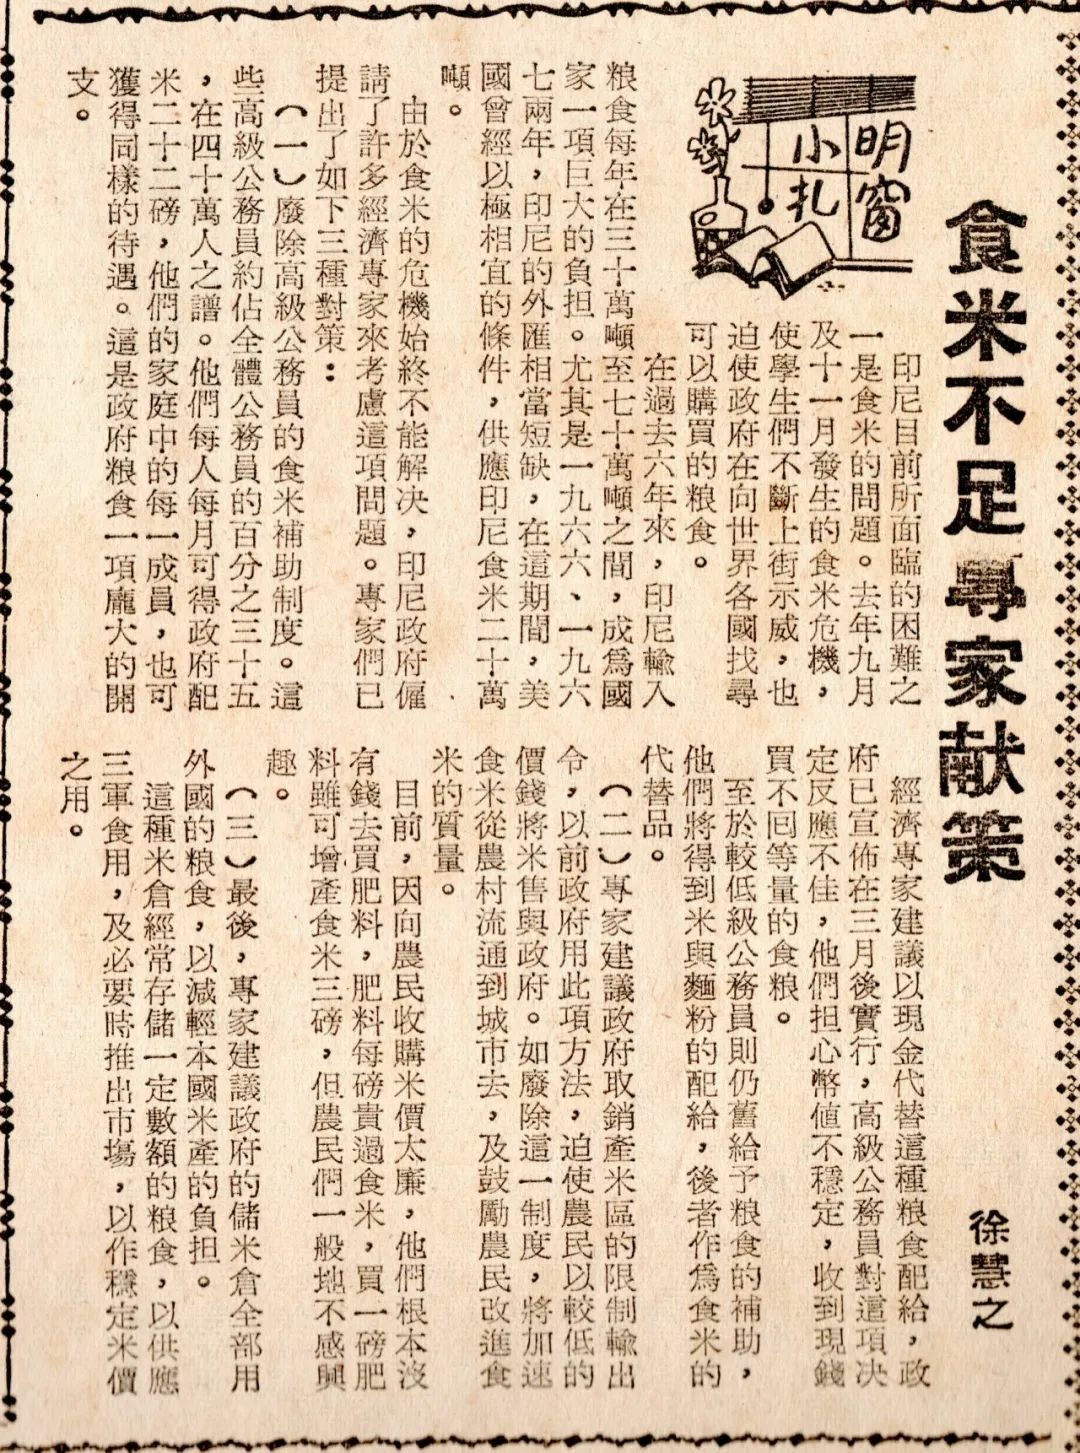 食米不足專家献策
徐慧之
明窗
小扎
印尼目前所面臨的困難之
一是食米的問題。去年九月
及十一月發生的食米危機，
使學生們不斷上街示威，也
迫使政府在向世界各國找尋
可以購買的粮食。
在過去六年來，印尼輸入
粮食每年在三十萬噸至七十萬噸之間，成爲國
家一項巨大的負担。尤其是一九六六、一九六
七兩年，印尼的外匯相當短缺，在這期間，美
國曾經以極相宜的條件，供應印尼食米二十萬
噸。
由於食米的危機始終不能解决，印尼政府僱
請了許多經濟專家來考慮這項問題。專家們已
提出了如下三種對策：
（一）廢除高級公務員的食米補助制度。這
些高級公務員約佔全體公務員的百分之三十五
，在四十萬人之譜。他們每人每月可得政府配
米二十二磅，他們的家庭中的每一成員，也可
獲得同樣的待遇。這是政府粮食一項龐大的開
支。
經濟專家建議以現金代替這種粮食配給，政
府已宣佈在三月後實行，高級公務員對這項决
定反應不佳，他們担心幣値不穩定，收到現錢
買不回等量的食粮。
至於較低級公務員則仍舊給予粮食的補助，
他們將得到米與麵粉的配給，後者作爲食米的
代替品。
（二）專家建議政府取銷產米區的限制輸出
令，以前政府用此項方法，迫使農民以較低的
價錢將米售與政府。如廢除這一制度，將加速
食米從農村流通到城市去，及鼓勵農民改進食
米的質量。
目前，因向農民收購米價太廉，他們根本沒
有錢去買肥料，肥料每磅貴過食米，買一磅肥
料雖可增產食米三磅，但農民們一般地不感興
趣。
（三）最後，專家建議政府的儲米倉全部用
外國的粮食，以減輕本國米產的負担。
這種米倉經常存儲一定數額的粮食，以供應
三軍食用，及必要時推出市場，以作穩定米價
之用。